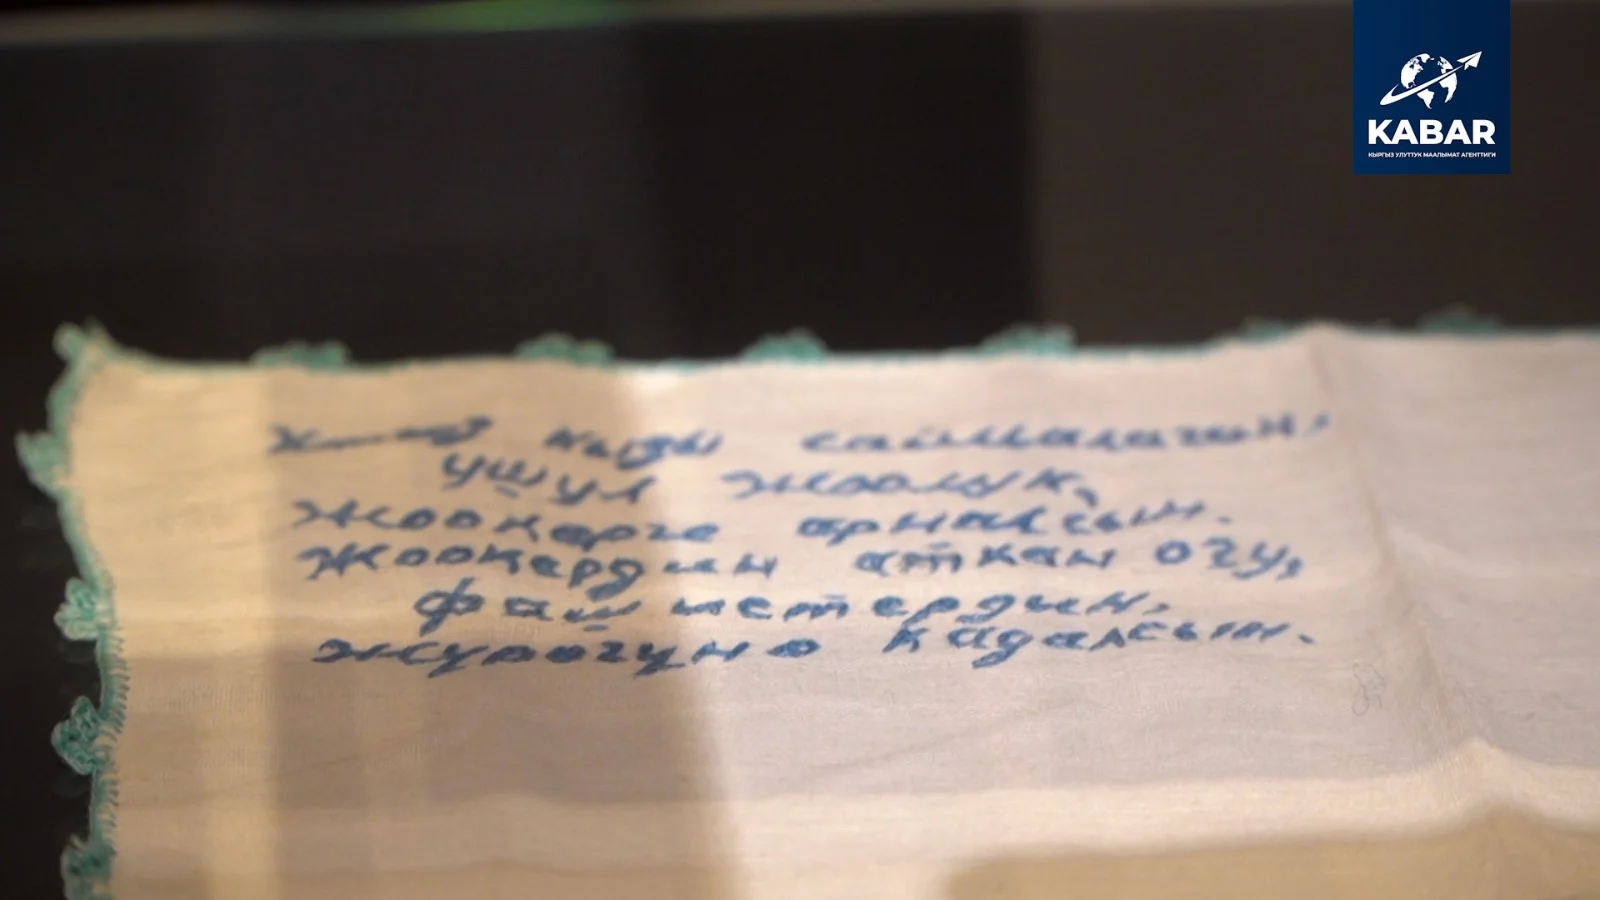 KABAR
КЫРГЫЗ УЛУТТУК МААЛЫМАТ АГЕНТТИГИ
кызы саймалаган,
ушул жоолук,
Жоокерге арналсын.
Жоокердин аткан огу,
фашистердин,
жүрөгүнө кадалсын.